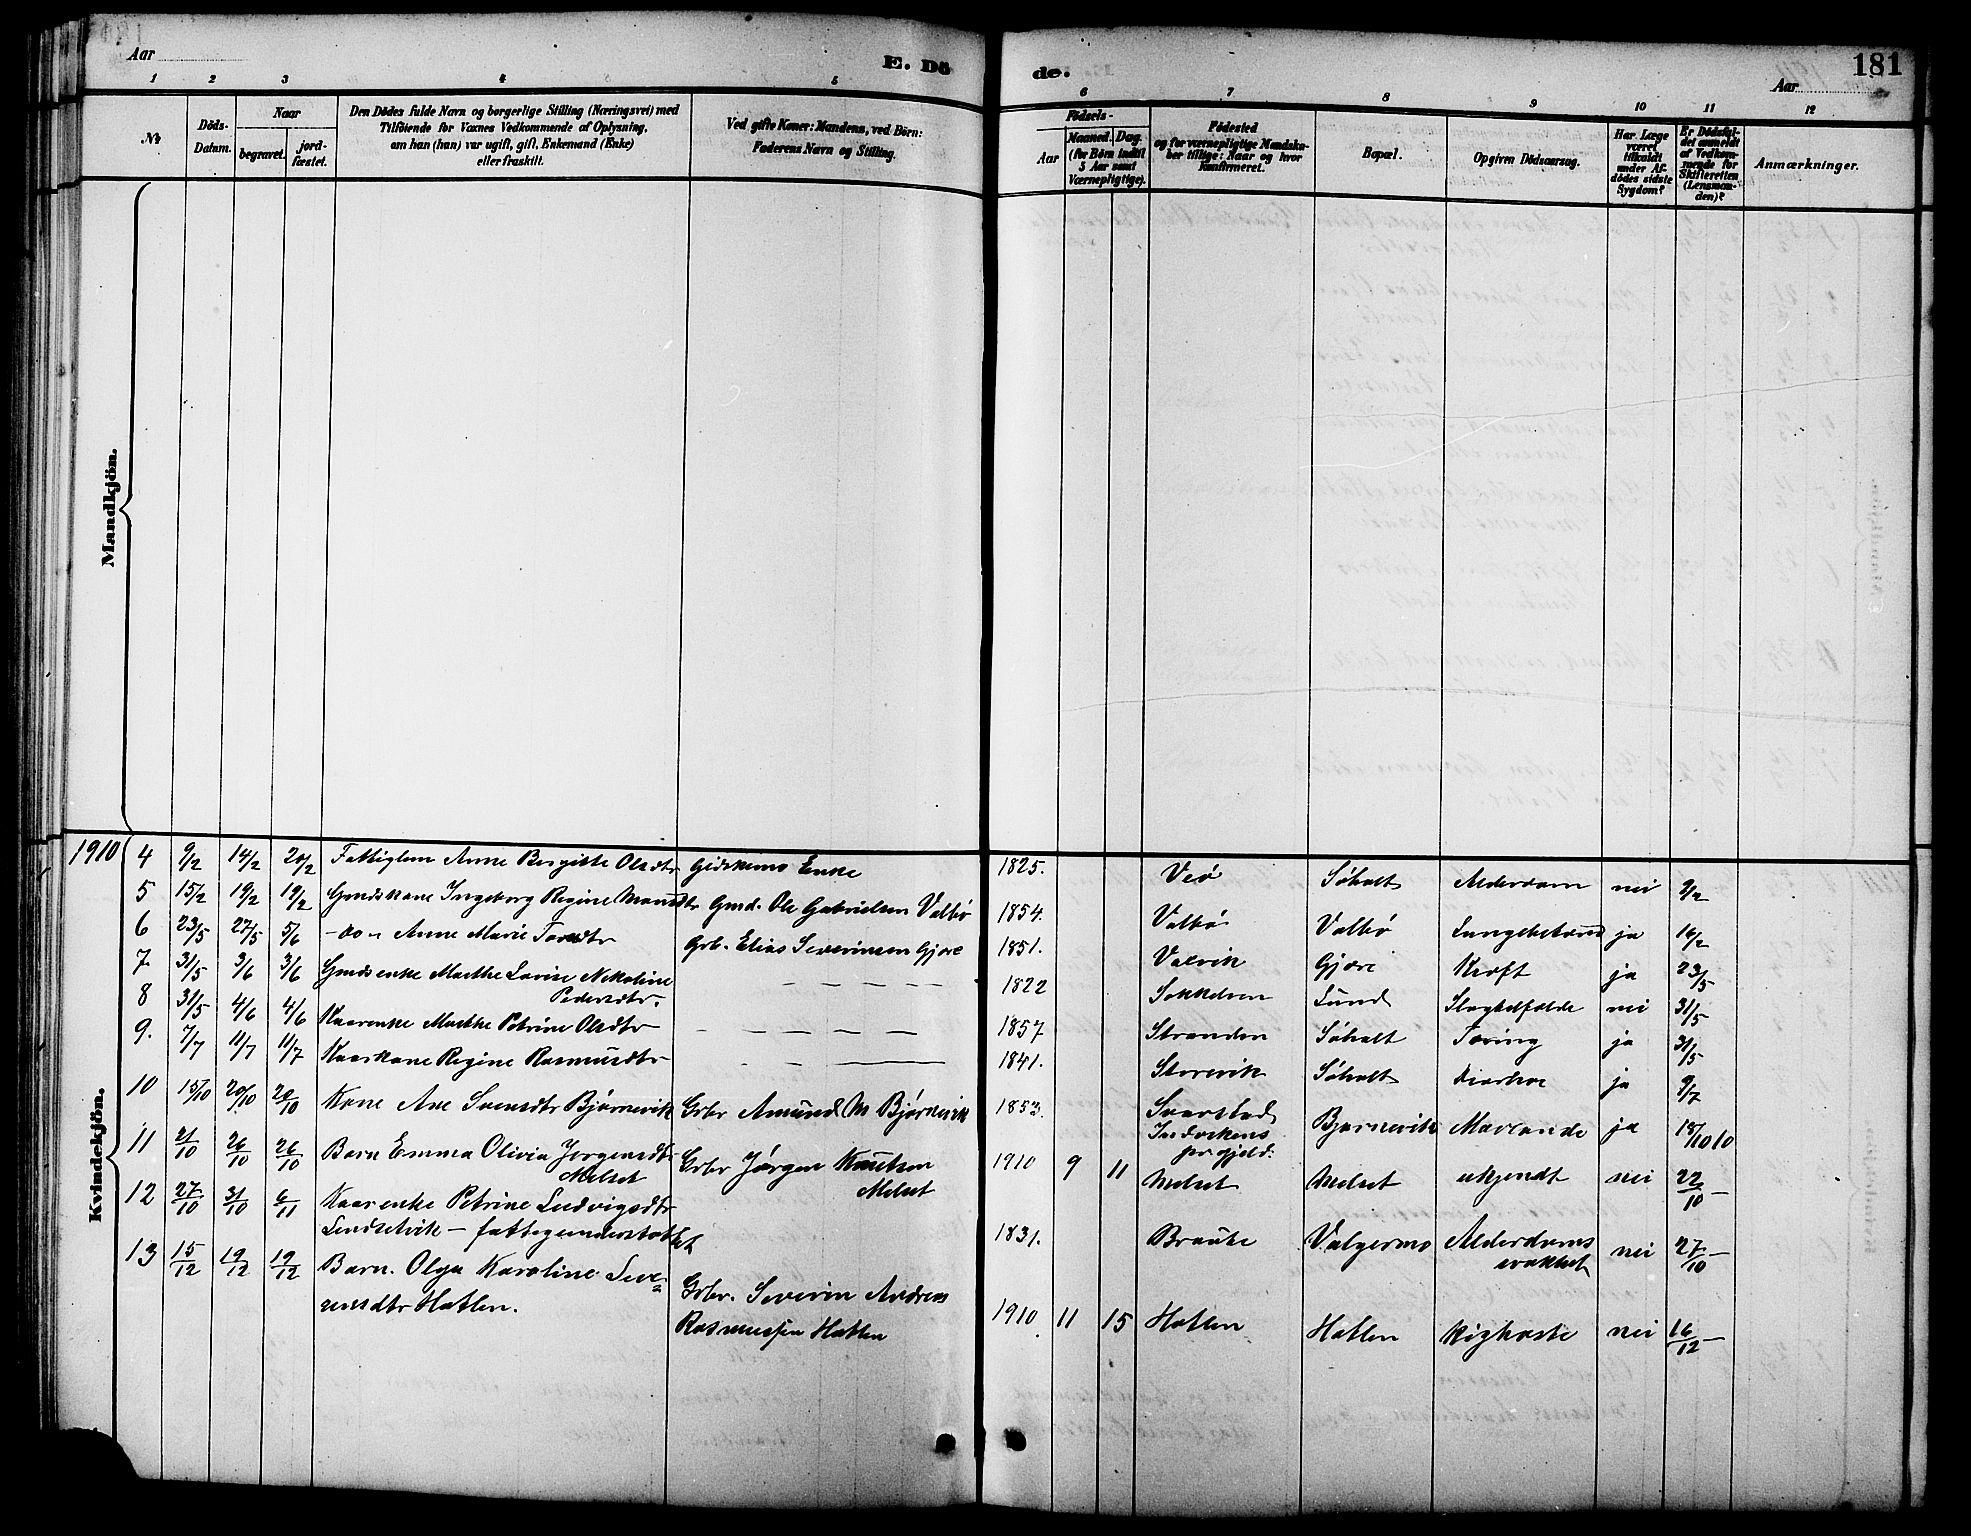 Aar
E. Dö
de.
Aar
181
1 2 3 4 5
6 7 8 9 10 11 12
No
Döds-
Datum.
Naar
begravet.
jord-
fæstet.
Den Dödes fulde Navn og borgerlige Stilling (Næringsvei) med
Tilföiende for Voxnes Vedkommende af Oplysning,
om han (hun) var ugift, gift, Enkemand (Enke)
eller fraskilt.
Ved gifte Koner: Mandens, ved Börn:
Faderens Navn og Stilling.
Födsels-
Aar
Maaned. Dag.
(for Börn indtil
5 Aar samt
Værnepligtige).
Födested
og for værnepligtige Mandska-
ber tillige: Naar og hvor
konfirmeret.
Bopæl.
Opgiven Dödsaarsag.
Har Læge
været
tilkaldt
under Af-
dödes sidste
Sygdom?
Er Dödsfal-
det anmeldt
af Vedkom-
mende for
Skifteretten
(Lensman-
den)?
Anmærkninger.
Mandkjön.
Kvindekjön.
1910 4 9/2 14/2 20/2 Fattiglem Anne Birgitte Olsdtr Gidskemo Enke 1825. Veö Söholt Alderdom nei 9/2
5 15/2 19/2 19/2 Gmdskone Ingeborg Regine Monsdtr Gmd. Ole Gabrielsen Valbö 1854. Valbö Valbö ja 16/2
6 23/5 27/5 5/6 - do - Anne Marie Grb. Elias Severinsen Gjöre 1851. Gjöre Kræft ja 23/5
7. 31/5 3/6 3/6 Gmdsenke Marthe Lovise Nikoline
Pedersdtr. — — — — 1822 Lund nei 31/5
8 31/5 4/6 4/6 Kaarenke Marthe Petrine Olsdtr — — — — 1857 Stranden Söholt Tæring ja 31/5
9. 7/7 11/7 11/7 Kaarkone Regine Rasmusdtr — — — 1841. Storevik Söholt ja 9/7
10 15/10 20/10 20/10 Kone Ane Svensdtr Bjørnevik Grbr Amund M Bjørnevik 1853.
Indvikens
prgjeld. Bjørnevik ja 18/10 10
11 21/10 26/10 26/10 Barn Emma Olivia Jørgensdtr
Melset Grbr Jørgen Knutsen
Melset 1910 9 11 Melset Melset ukjendt nei 22/10 –
12 27/10 31/10 6/11 Kaarenke Petrine Ludvigsdtr
– fattigunderstøttet 1831. Braute Valgermo Alderdoms
svækket nei 27/10 –
13 15/12 19/12 19/12 Barn. Olga Karoline Seve-
rinsdtr Hatlen. Grbr. Severin Andreas
Rasmussen Hatlen 1910 11 15 Hatlen Hatlen Kighoste nei 16/12 –